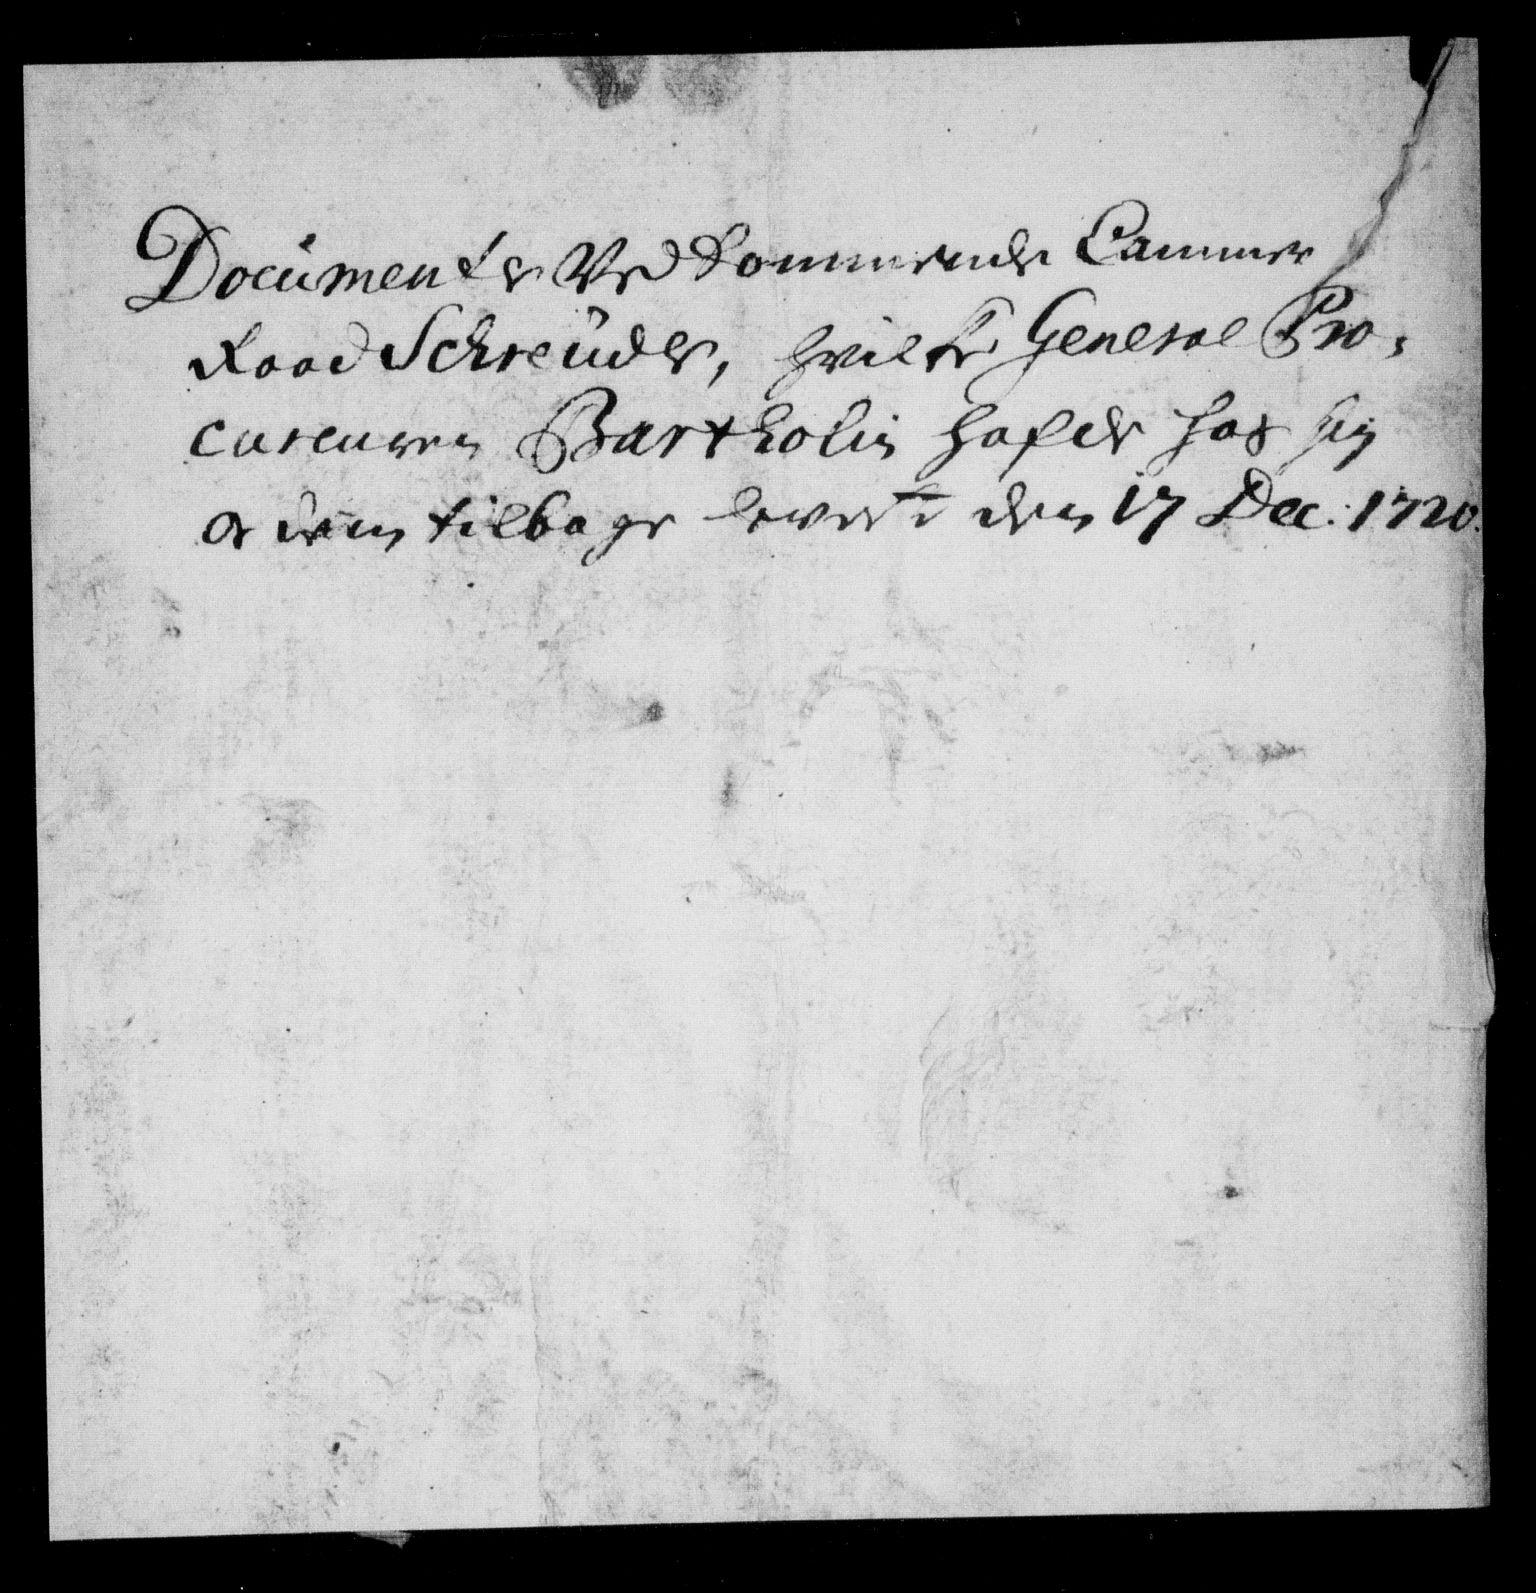 Documenter Vedkommende Cammer
Raad Schreüder, hvilke General Pro,
cureuren Bartholin hafde hos sig
og dem tilbage leveret den 17 Dec. 1720.